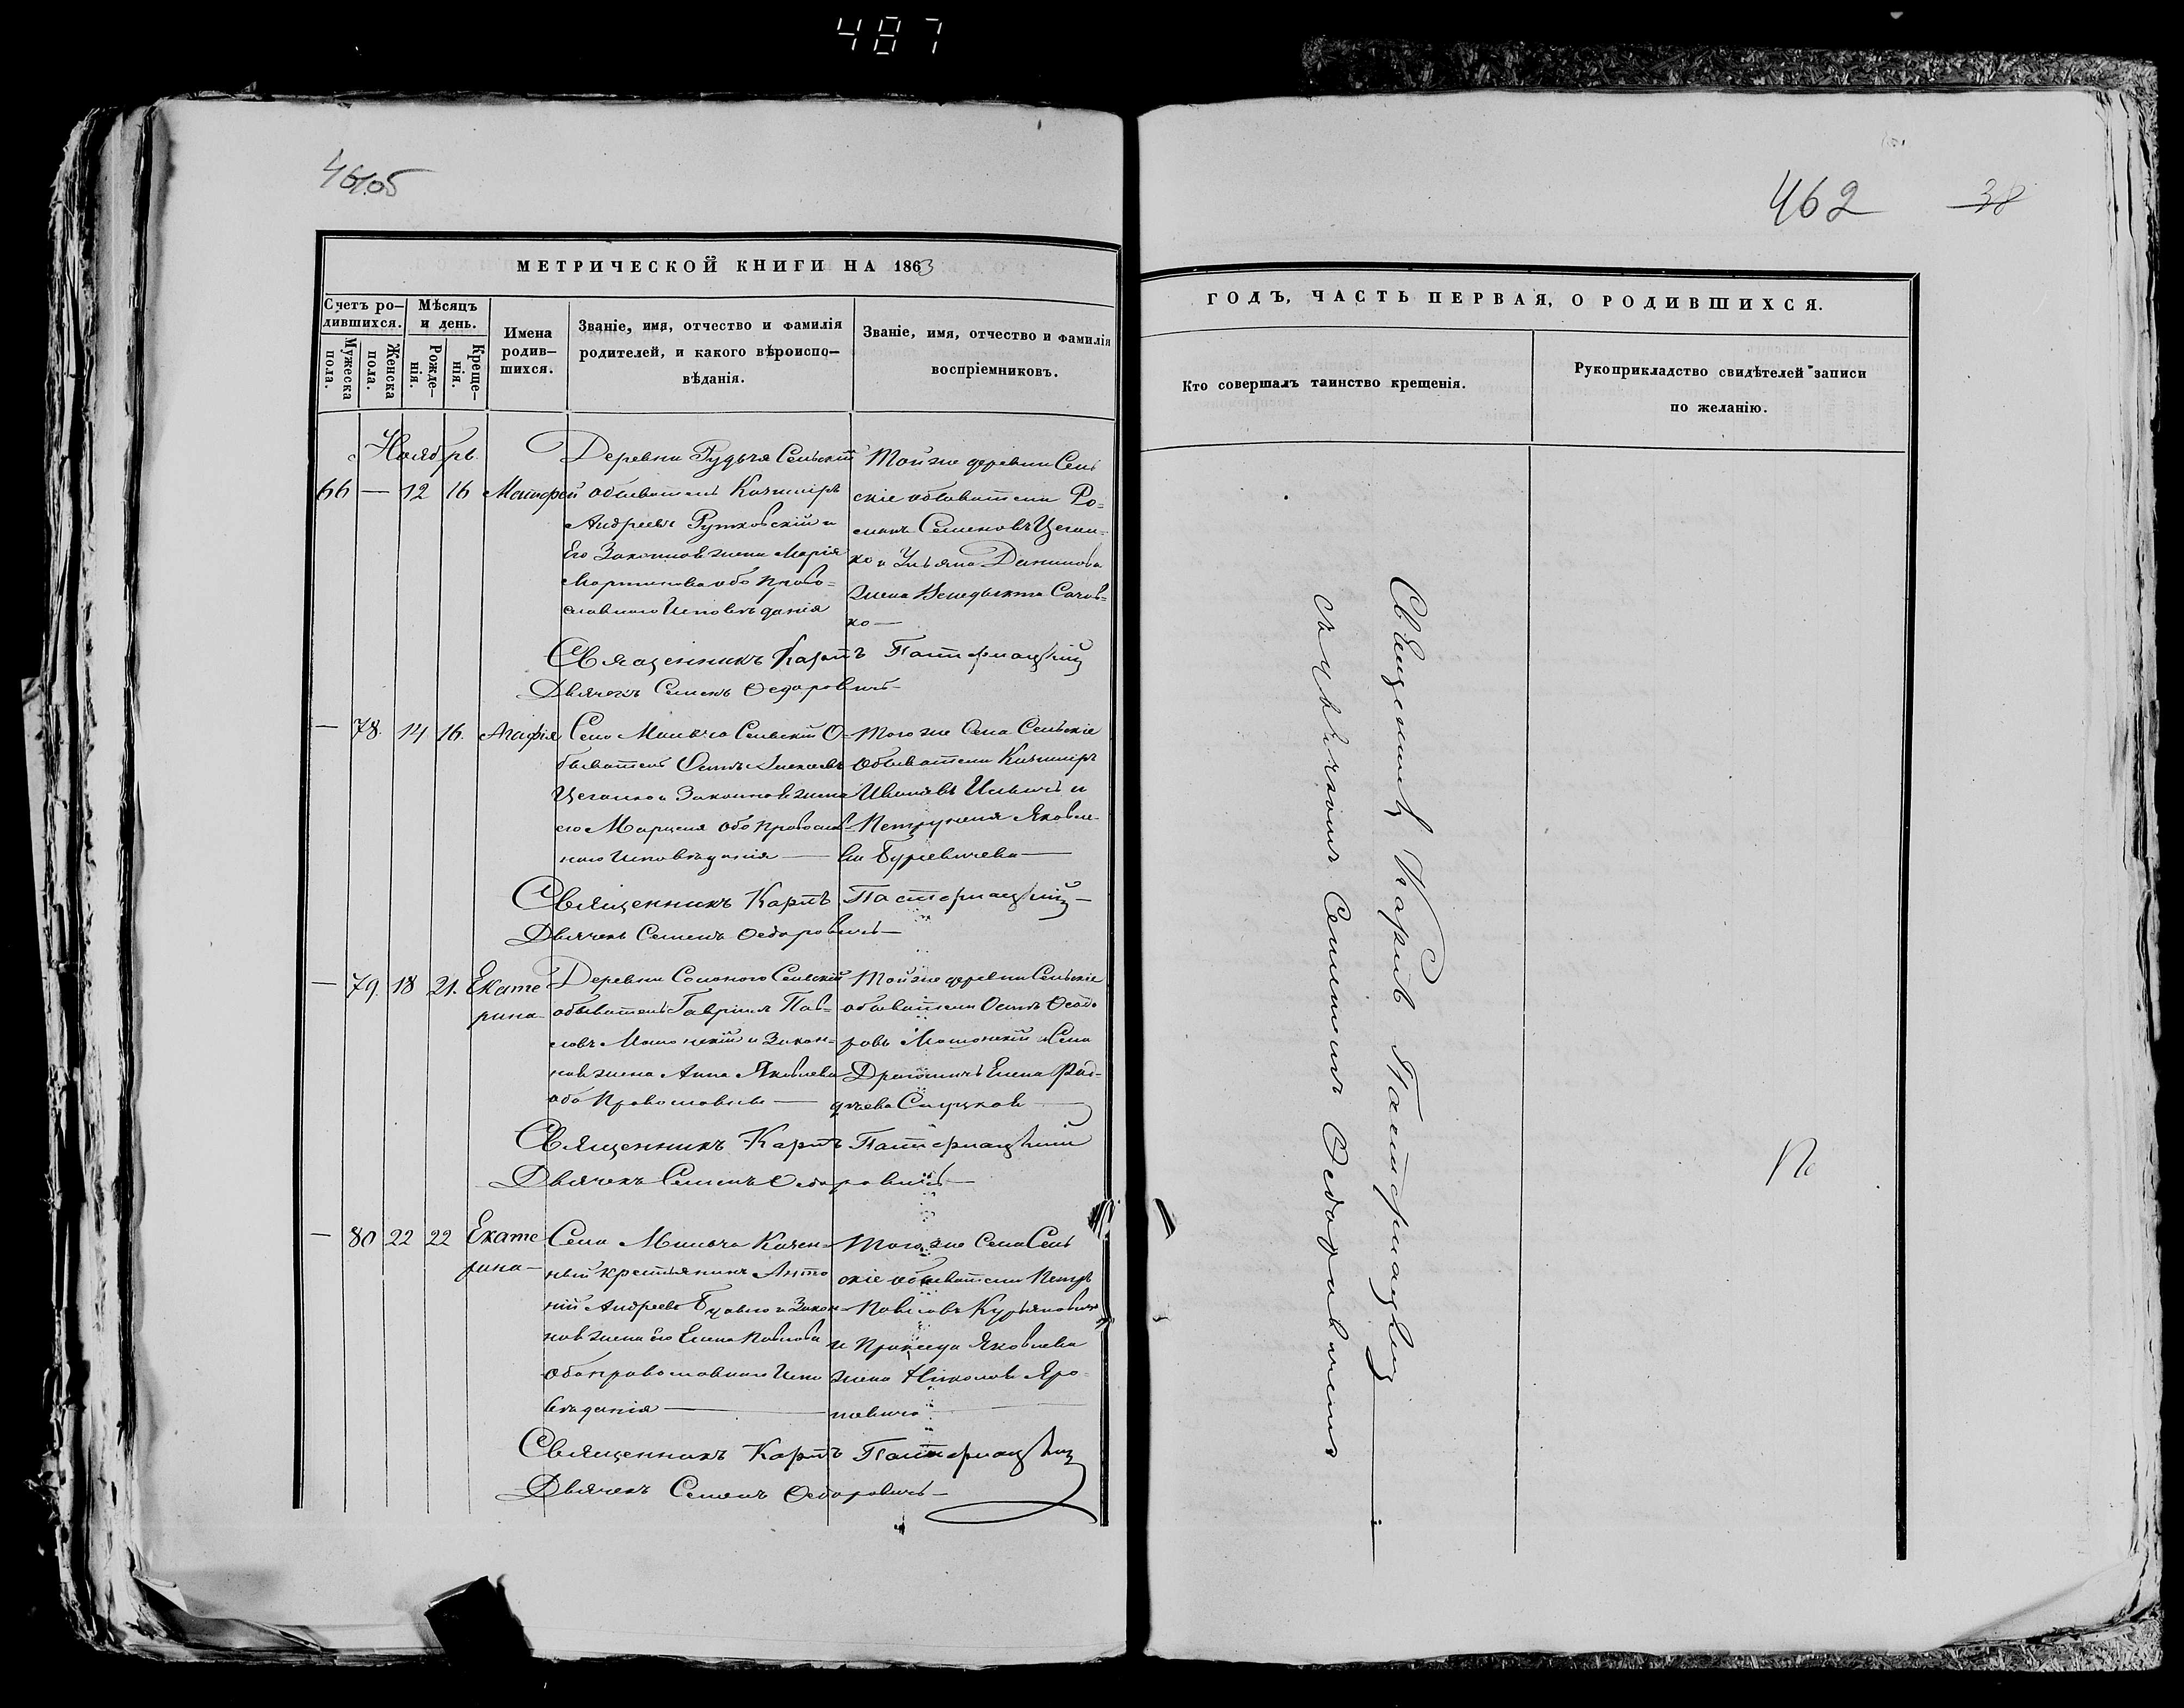 487
461об
МЕТРИЧЕСКОЙ КНИГИ НА 1863
Счетъ ро-
дившихся.
Мужеска
пола.
Женска
пола.
Мѣсяцъ
и день.
Рожде-
нія.
Креще-
нія.
Имена
родив-
шихся.
Званіе, имя, отчество и фамилія
родителей, и какого вѣроиспо-
вѣданія.
Званіе, имя, отчество и фамилія
воспріемниковъ.
Ноябрь.
66 — 12 16 Матфей
Деревни Рудьчя Сельскій
обыватель Казимиръ
Андреевъ Рутковскій и
Его Законнов жена Марія
Мартинова оба право-
славнаго Исповѣданія
Той же деревни Сель
скіе обыватели Ро-
манъ Семеновъ Цеган-
ко и Ульяна Данилова
жена Венедыкта
ко —
Священникъ Карпъ Пастернацкій
Дьячекъ Семенъ Ѳедоровичъ —
— 78. 14 16. Агафія
Села Мильча Сельскій О-
быватель Осипъ Алексѣевъ
Цеганко и Законнов жена
его Марцеля оба православ-
наго Исповѣданія —
Того же Села Сельскіе
Обыватели Казимиръ
Ивановъ Ильичъ и
Петрунеля Яковле-
ва Буревичева —
Священникъ Карпъ Пастернацкій —
Дьячекъ Семенъ Ѳедоровичъ —
— 79. 18 21. Екате
рина
Деревни Солоного Сельскій
обыватель Гавріилъ Пав-
ловъ и Закон-
нов жена Анна Яковлева
оба Православные —
Той же деревни Сельскіе
обыватели Осипъ Ѳеодо
ровъ и Села
Елена Фад-
дѣева
Священникъ Карпъ Пастернацкій
Дьячекъ Семенъ Ѳедоровичъ —
— 80 22 22 Екате
рина —
Села Мильча Казен-
ный крестьянинъ Анто
ній Андреевъ и Закон-
нов жена его Елена Павлова
оба православнаго Испо
вѣданія —
Того же Села Сель
скіе обыватели Петръ
Павловъ Курьяновичъ
и Пракседа Яковлева
жена Николая Яро-
Священникъ Карпъ Пастернацкій
Дьячекъ Семенъ Ѳедоровичъ —
462 38
ГОДЪ, ЧАСТЬ ПЕРВАЯ, О РОДИВШИХСЯ.
Кто совершалъ таинство крещенія.
Рукоприкладство свидѣтелей записи
по желанію.
Священникъ Карпъ Пастернацкій
съ дьячкомъ Семеномъ Ѳедоровичемъ